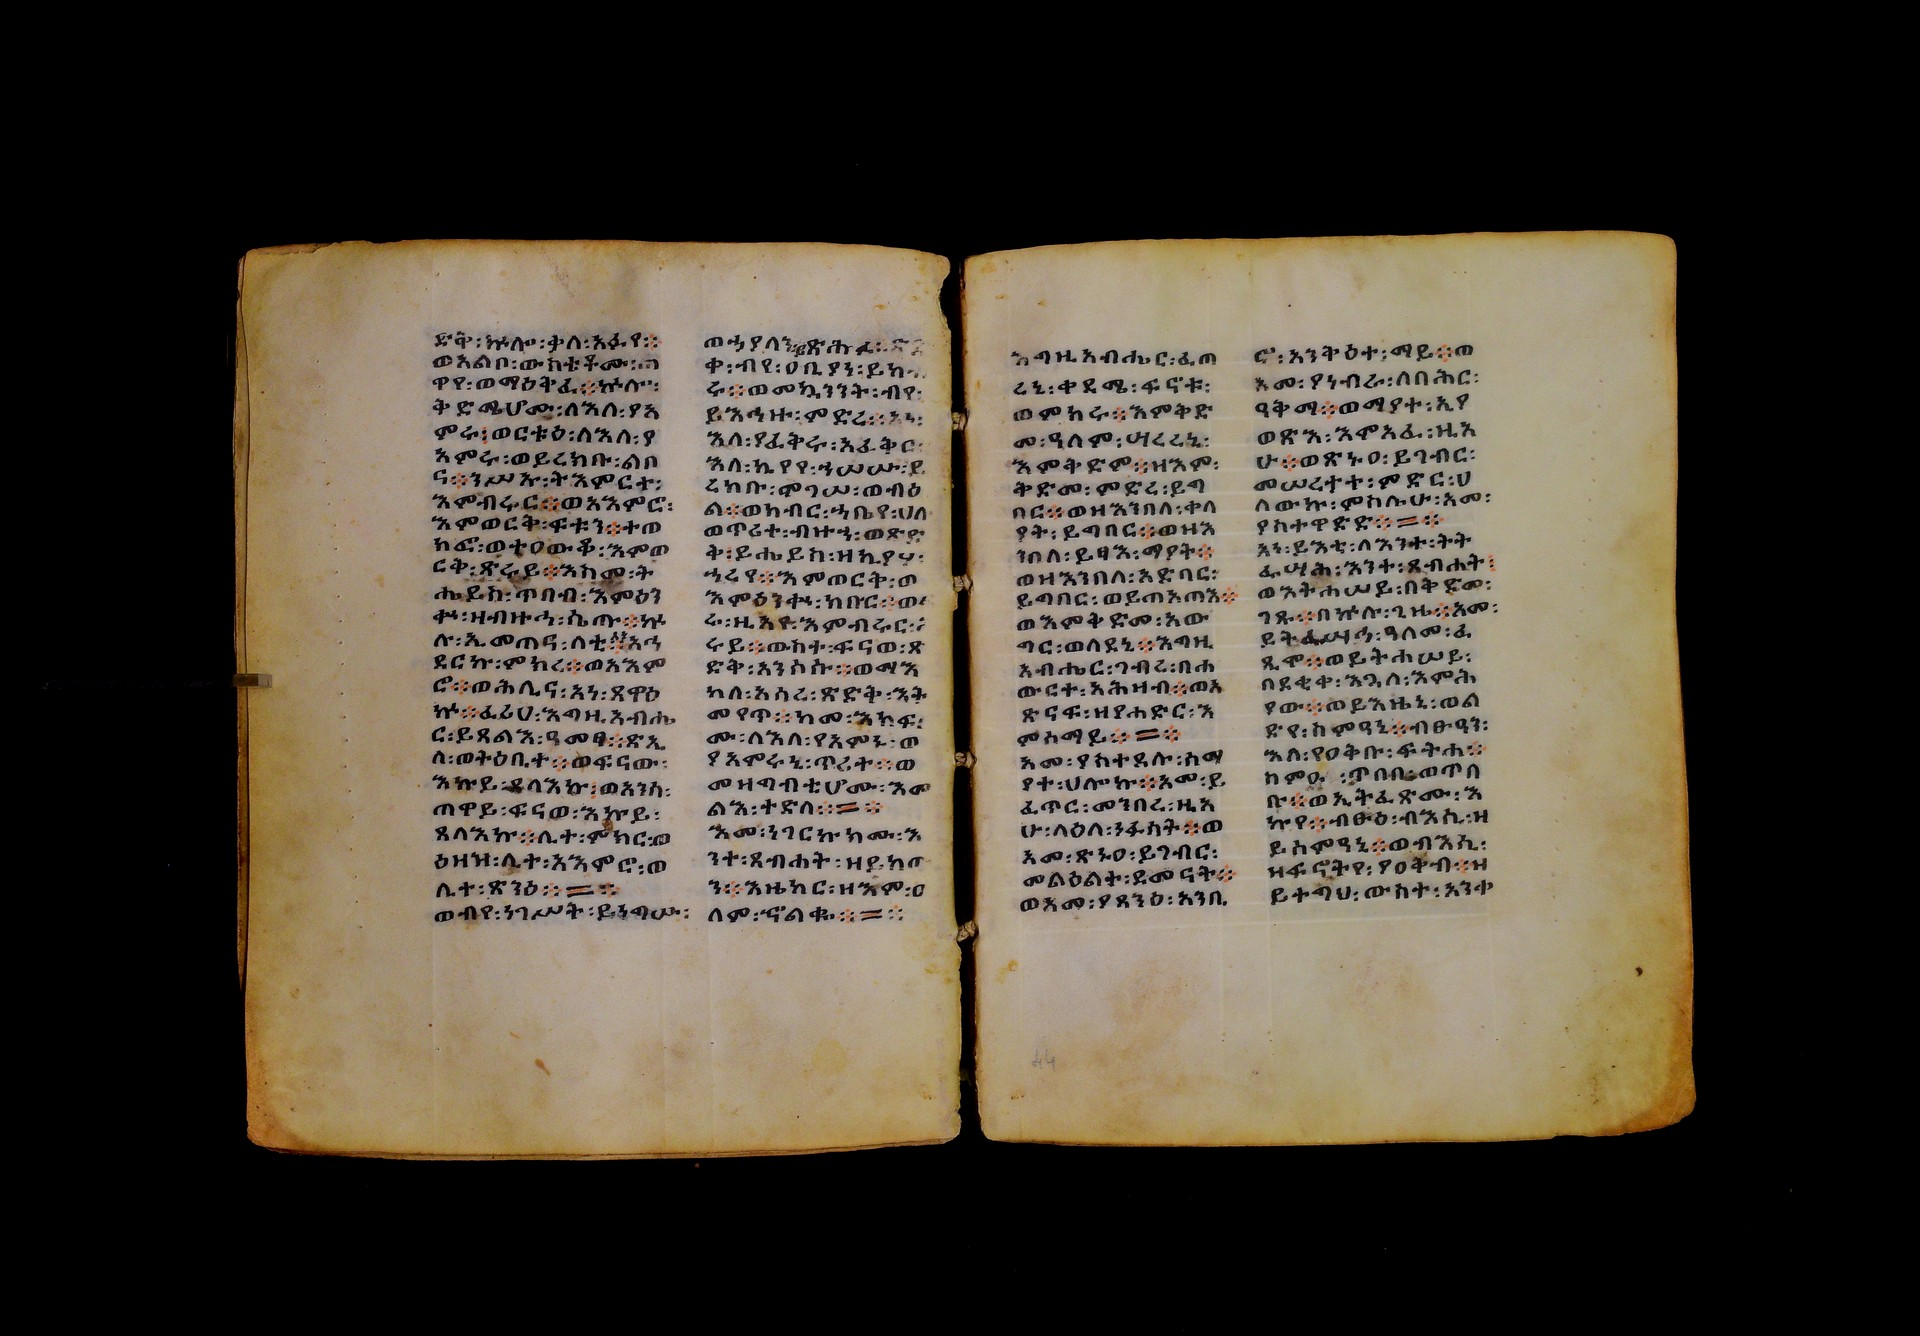 ድቅ፡ኵሎ፡ቃለ፡አፉየ፨
ወአልቦ፡ውስቴቶሙ፡ጠ
ዋየ፡ወማዕቅፈ፨ኵሎ፡
ቅድሜሆሙ፡ለእለ፡የአ
ምሩ፤ወርቱዕ፡ለእለ፡የ
አምሩ፡ወይረክቡ፡ልበ
ና፨ንሥኡ፡ትእምርተ፡
እምብሩር፨ወአእምሮ፡
እምወርቅ፡ፍቱን፨ተወ
ከፎ፡ወተዐውቆ፡እምወ
ርቅ፡ጽሩይ፨እስመ፡ት
ሔይስ፡ጥበብ፡እምዕን
ቍ፡ዘብዙኃ፡ሤጡ፨ኵ
ሉ፡ኢመጠና፡ለቲ፨አኀ
ደርኩ፡ምክረ፨ወአእም
ሮ፨ወሕሊና፡አነ፡ጸዋዕ
ኩ፨ፈሪሀ፡እግዚአብሔ
ር፡ይጸልእ፡ዓመፃ፨ጽኢ
ለ፡ወትዕቢተ፨ወፍናው፡
እኩይ፡ጸላእኩ፡ወአንሰ፡
ጠዋይ፡ፍናወ፡እኩይ፡
ጸላእኩ፨ሊተ፡ምክር፡ወ
ዕዘዝ፡ሊተ፡አእምሮ፡ወ
ሊተ፡ጽንዕ፨=፨
ወብየ፡ነገሥት፡ይነግሡ፡
ወኃያላን፡ጽሕፈ፡ጽድ
ቀ፡ብየ፡ዐቢያን፡ይከብ
ሩ፨ወመኳንንት፡ብየ፡
ይእኅዙ፡ምድረ፨አነ፡
እለ፡ያፈቅሩ፡አፈቅር፡
እለ፡ኪያየ፡ኀሠሡ፡ይ
ረክቡ፡ሞገሠ፡ወብዕ
ል፨ወክብር፡ኀቤየ፡ሀለ
ወጥሪተ፡ብዙኅ፡ወጽድ
ቅ፡ይሔይስ፡ዘኪያየ፡
ኀረየ፨እምወርቅ፡ወ
እምዕንቍ፡ክቡር፨ወፍ
ሬ፡ዚአየ፡እምብሩር፡ኅ
ሩይ፨ውስተ፡ፍናወ፡ጽ
ድቅ፡አንሶሱ፨ወማእ
ከለ፡አሰረ፡ጽድቅ፡እት
መየጥ፨ከመ፡እክፍ
ሙ፡ለእለ፡የአምኑ፡ወ
የአምሩኒ፡ጥሪተ፨ወ
መዝግብቲሆሙ፡እመ
ልእ፡ተድላ፨=፨
እመ፡ነገርኩክሙ፡እ
ንተ፡ጸብሐት፡ዘይከው
ን፨እዜከር፡ዘእም፡ዐ
ለም፡ኖልቁ፨=፨
እግዚአብሔር፡ፈጠ
ረኒ፡ቀደሜ፡ፍኖቱ፡
ወምክሩ፨እምቅድ
መ፡ዓለም፡ሣረረኒ፡
እምቅድም፨ዘእም፡
ቅድመ፡ምድረ፡ይግ
በር፨ወዘእንበለ፡ቀላ
ያት፡ይግበር፨ወዘእ
ንበለ፡ይፃእ፡ማያት፨
ወዘእንበለ፡አድባር፡
ይግበር፡ወይጠአጠእ፨
ወእምቅድመ፡አው
ግር፡ወለደኒ፨እግዚ
አብሔር፡ገብረ፡በሐ
ውርተ፡አሕዛብ፨ወአ
ጽናፍ፡ዘየሐድር፡እ
ምሰማይ፨=፨
አመ፡ያስተደሉ፡ሰማ
ያተ፡ሀሎኩ፨አመ፡ይ
ፈጥር፡መንበረ፡ዚአ
ሁ፡ላዕለ፡ነፋሳት፨ወ
አመ፡ጽኑዐ፡ይገብር፡
መልዕልተ፡ደመናት፨
ወአመ፡ያጸንዕ፡አንቢ
ሮ፡አንቅዕተ፡ማይ፨ወ
አመ፡ያነብራ፡ለባሕር፡
ዓቅማ፨ወማያተ፡ኢየ
ወጽእ፡እሞአፈ፡ዚአ
ሁ፨ወጽኑዐ፡ይገብር፡
መሠረተተ፡ምድር፡ሀ
ለውኩ፡ምስሌሁ፡አመ፡
ያስተዋድድ፨=፨
አነ፡ይእቲ፡ለእንተ፡ትት
ፌሣሕ፡እንተ፡ጸብሐት፡
ወእትሐሠይ፡በቅድመ፡
ገጹ፨በኵሉ፡ጊዜ፨አመ፡
ይትፌሣሕ፡ዓለመ፡ፈ
ጺሞ፨ወይትሐሠይ፡
በደቂቀ፡እጓለ፡እምሕ
ያው፨ወይእዜኒ፡ወል
ድየ፡ስምዓኒ፨ብፁዓን፡
እለ፡የዐቅቡ፡ፍትሐ፨
ስምዑ፡ጥበበ፡ወጥበ
ቡ፨ወኢትፈጽሙ፡እ
ዝየ፨ብፁዕ፡ብእሲ፡ዘ
ይሰምዓኒ፨ወብእሲ፡
ዘፍኖትየ፡የዐቅብ፨ዘ
ይተግህ፡ውስተ፡አንቀ
44